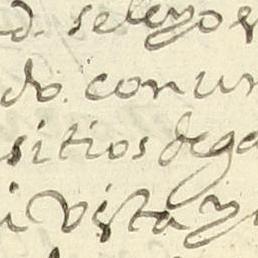 d. se leyo e
do. con un
sitios de ga
i vista y